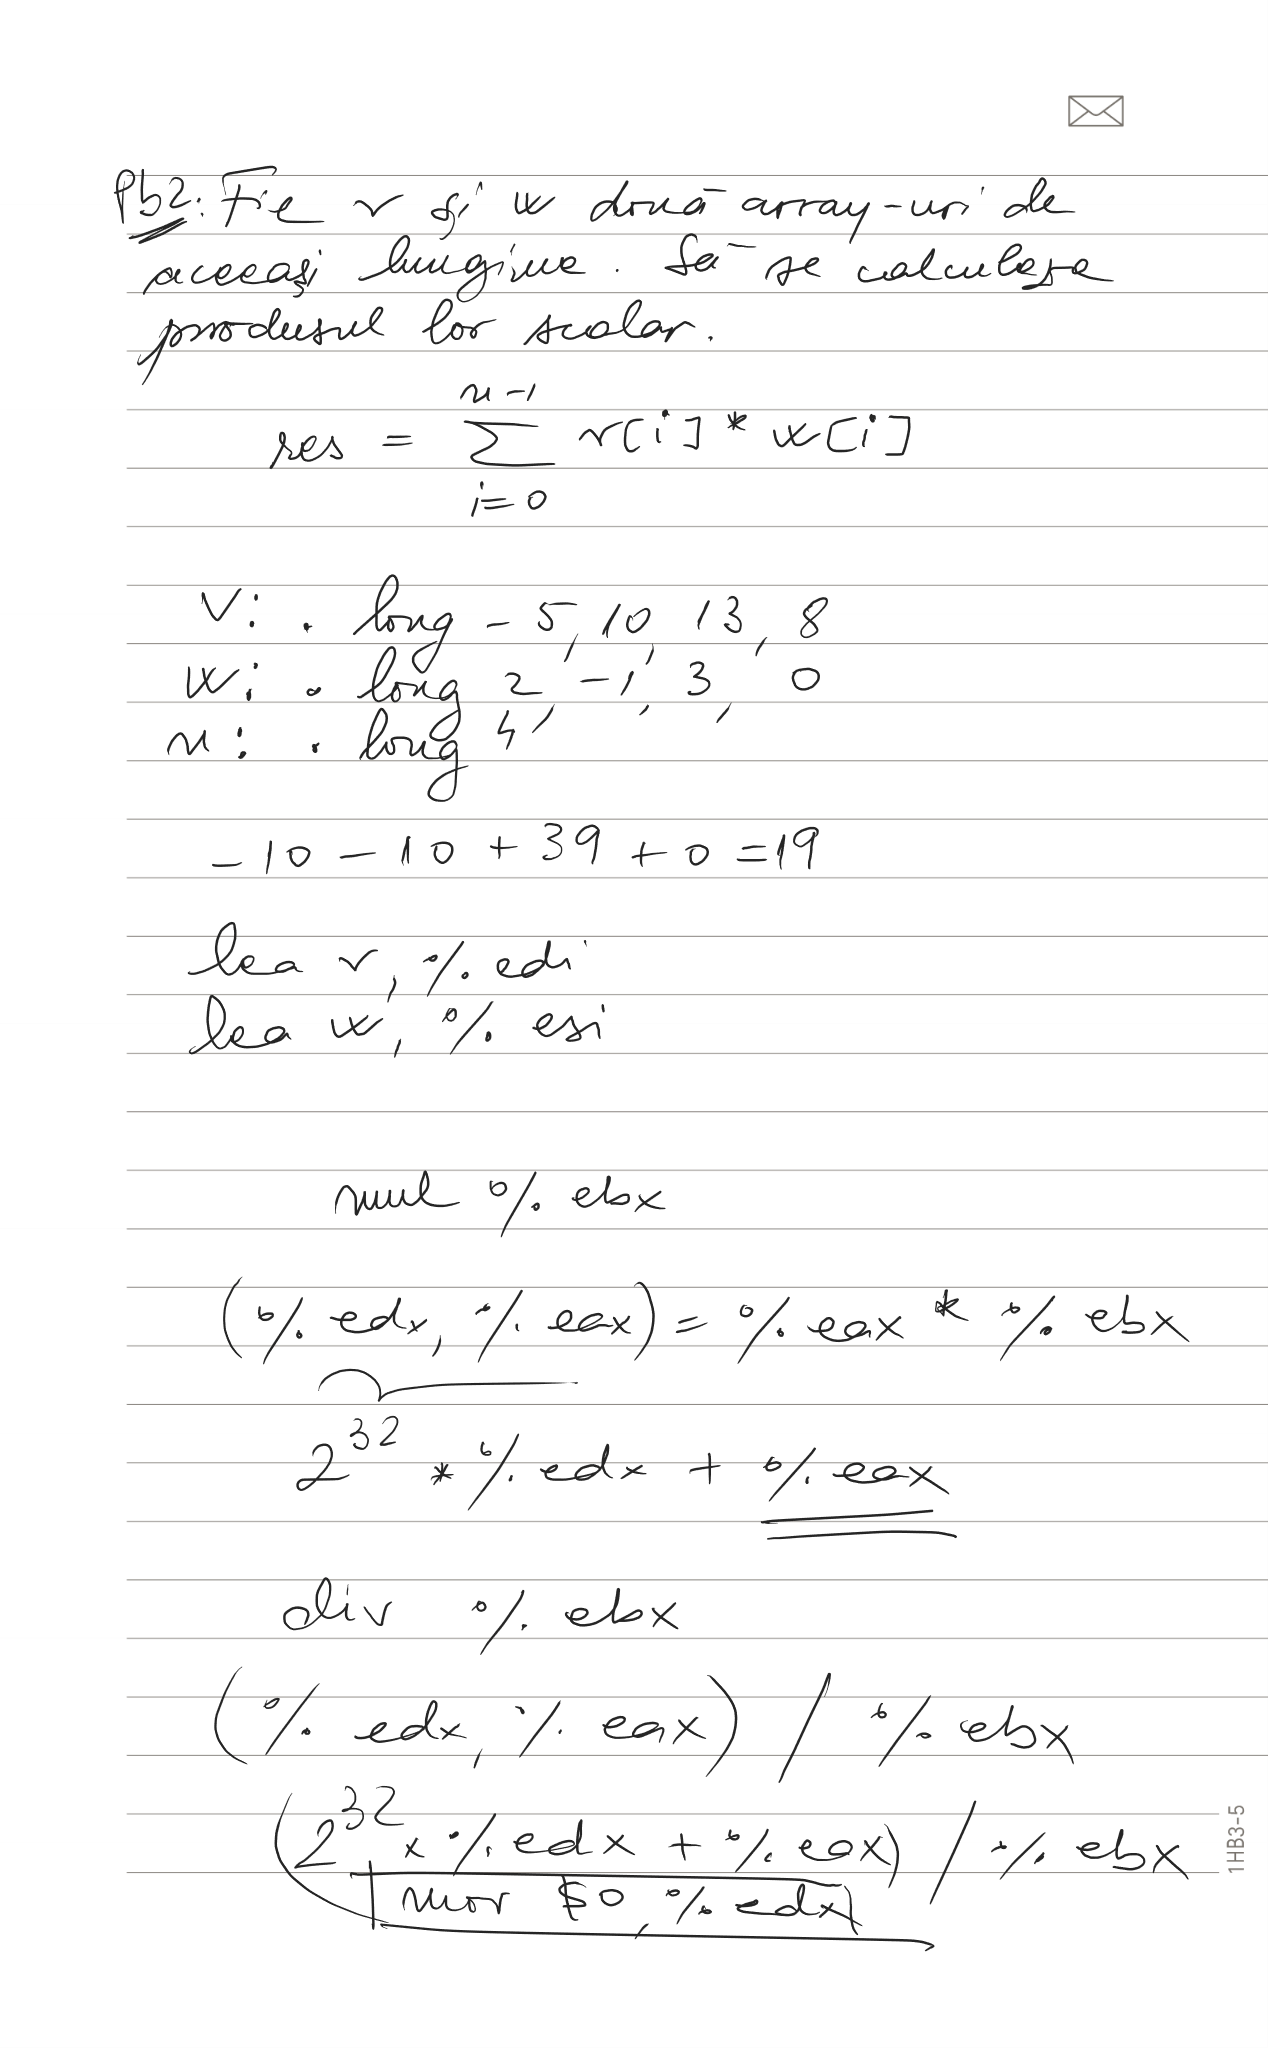 Pb2: Fie v și w două array-uri de
aceeași lungime. Să se calculeze
produsul lor scalar.
n-1
res = ∑ v[i] * w[i]
i=0
v: .long -5, 10, 13, 8
w: .long 2, -1, 3, 0
n: .long 4
-10 - 10 + 39 + 0 = 19
lea v, %edi
lea w, %esi
mul %ebx
(%edx, %eax) = %eax * %ebx
2^32 * %edx + %eax
div %ebx
(%edx, %eax) / %ebx
(2^32 x %edx + %eax) / %ebx
mov $0, %edx
1HB3-5